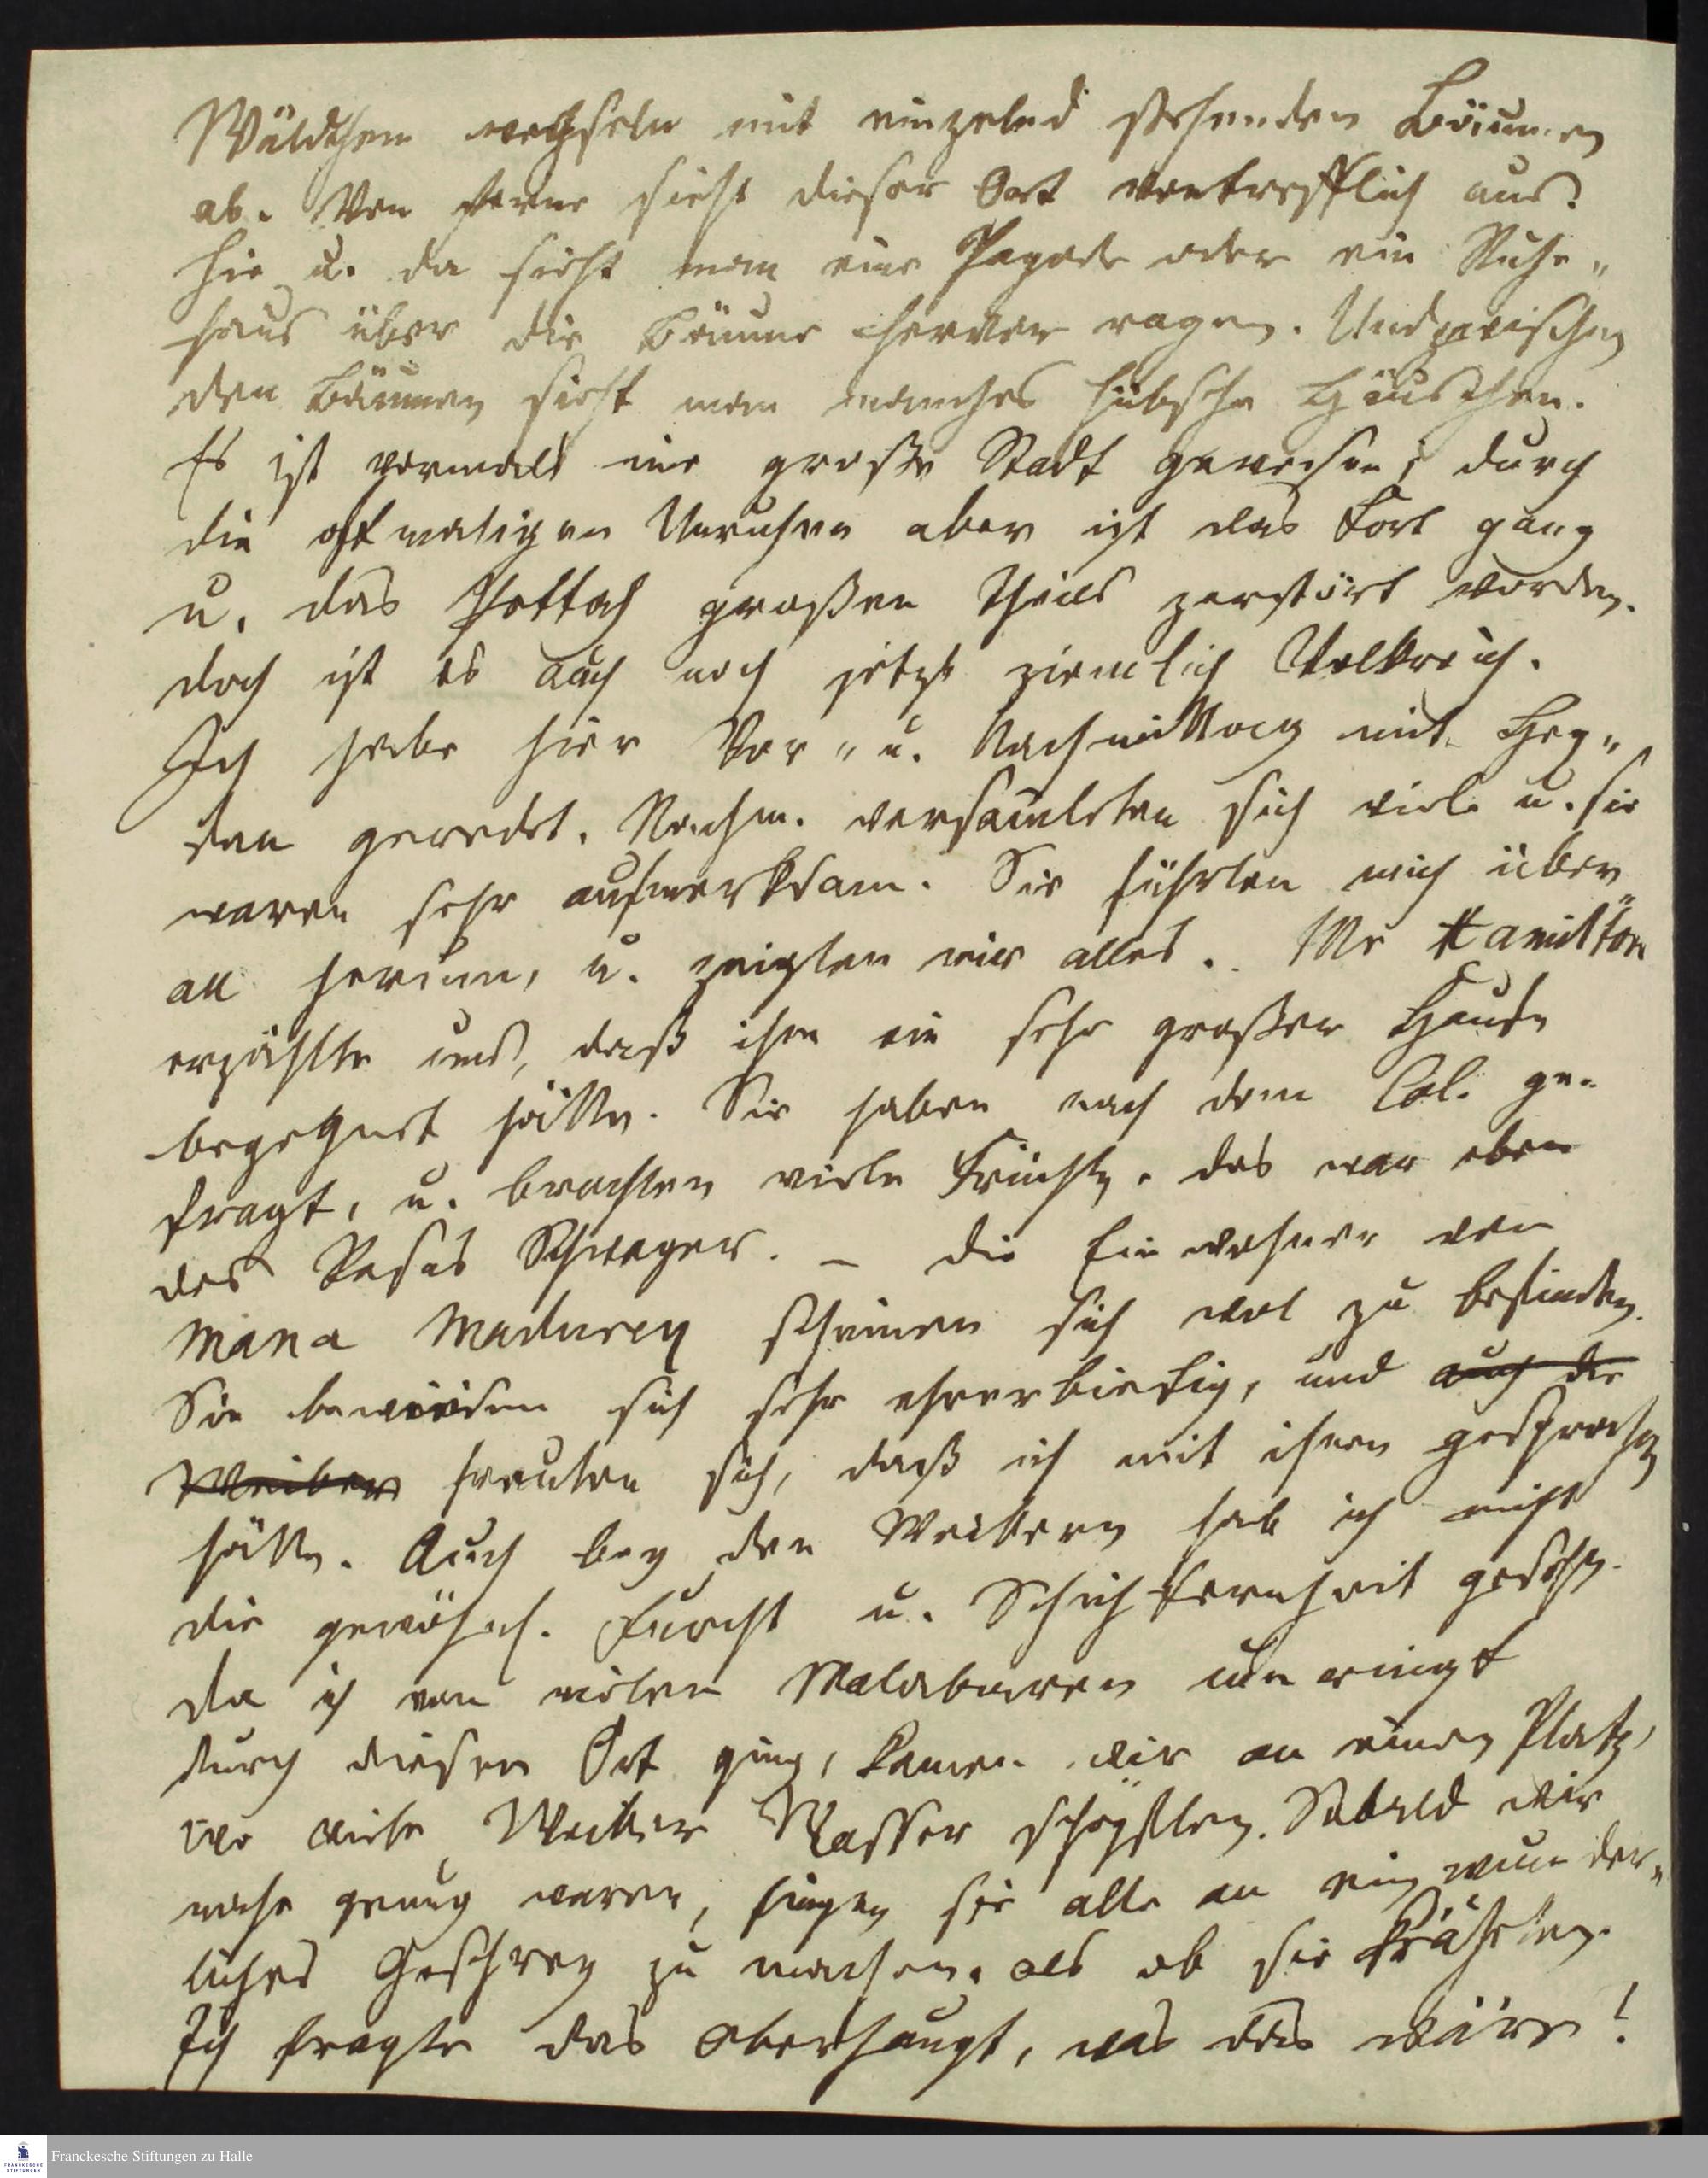 Wäldchen wechseln mit einzelnd stehenden Bäumen
ab. Von ferne sieht dieser Ort vortrefflich aus.
Hie u. da sieht man eine Pagode oder ein Ruhe„
haus über die Bäume hervor ragen. Und zwischen
den Bäumen sieht man manches hübsche Häuschen.
Es ist vormals eine große Stadt gewesen; durch
die oftmaligen Unruhen aber ist das Fort ganz
u. das Pettah großen Theils zerstört worden.
doch ist es auch noch jetzt ziemlich Volkreich.
Ich habe hier Vor„ u. Nachmittag mit Hey„
den geredet. Nachm. versamleten sich viele u. sie
waren sehr aufmerksam. Sie führten mich über„
all herum, u. zeigten mir alles. Mr Hamilton
erzählte uns, daß ihm ein sehr großer Haufe
begegnet hätte. Sie haben nach dem Col. ge„
fragt, u. brachten viele Früchte. das war eben
des Rajas Schwager. – die Einwohner von
Mana Madurey scheinen sich wol zu befinden.
Sie bewiesen sich sehr ehrerbietig, und auch die
Weiber freuten sich, daß ich mit ihnen gesprochen
hätte. Auch bey den Weibern hab ich nicht
die gewöhnl. Furcht u. Schüchternheit gesehen.
da ich von vielen Malabaren umringt
durch diesen Ort ging, kamen wir an einen Platz,
wo viele Weiber Wasser schöpften. Sobald wir
nahe genug waren, fingen sie alle an ein wunder„
liches Geschrey zu machen, als ob sie kräheten.
Ich fragte das Oberhaupt, was das wäre!
Franckesche Stiftungen zu Halle